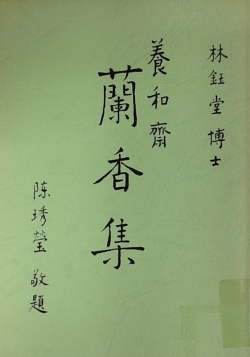 林鈺堂博士
養和齋
蘭香集
陈琇莹敬題